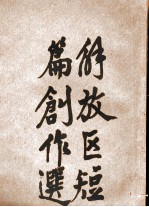 解放区短
篇創作選